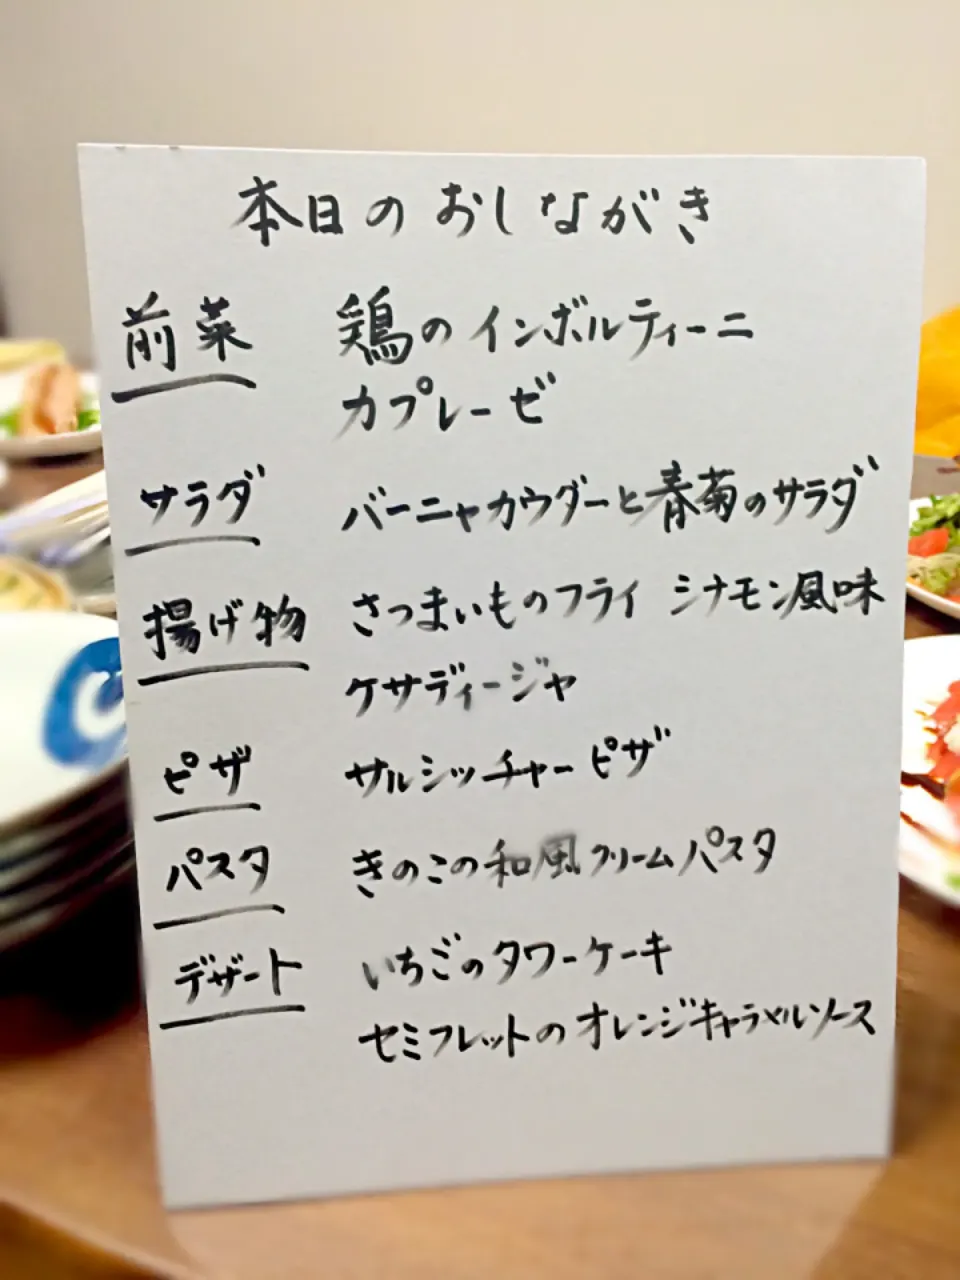 本日のおしながき
前菜 鶏のインボルティーニ
カプレーゼ
サラダ バーニャカウダーと春菊のサラダ
揚げ物 さつまいものフライ シナモン風味
ケサディージャ
ピザ サルシッチャーピザ
パスタ きのこの和風クリームパスタ
デザート いちごのタワーケーキ
セミフレットのオレンジキャラメルソース